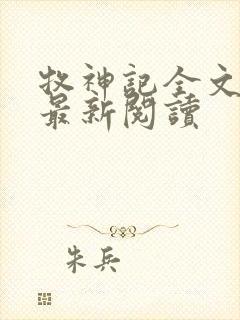 牧神記全文
最新閱讀
朱兵